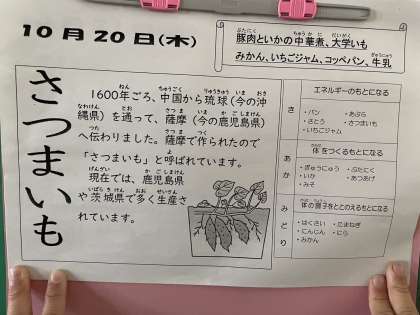 10月20日(木)
豚肉といかの中華煮、大学いも
みかん、いちごジャム、コッペパン、牛乳
さつまいも
1600年ごろ、中国から琉球(今の沖
縄県)を通って、薩摩(今の鹿児島県)
へ伝わりました。薩摩で作られたので
「さつまいも」と呼ばれています。
現在では、鹿児島県
や茨城県で多く生産さ
れています。
エネルギーのもとになる
き
・パン ・あぶら
・さとう ・さつまいも
・いちごジャム
体をつくるもとになる
あか
・ぎゅうにゅう ・ぶたにく
・いか ・あつあげ
・みそ
体の調子をととのえるもとになる
みどり
・はくさい ・たまねぎ
・にんじん ・にら
・みかん